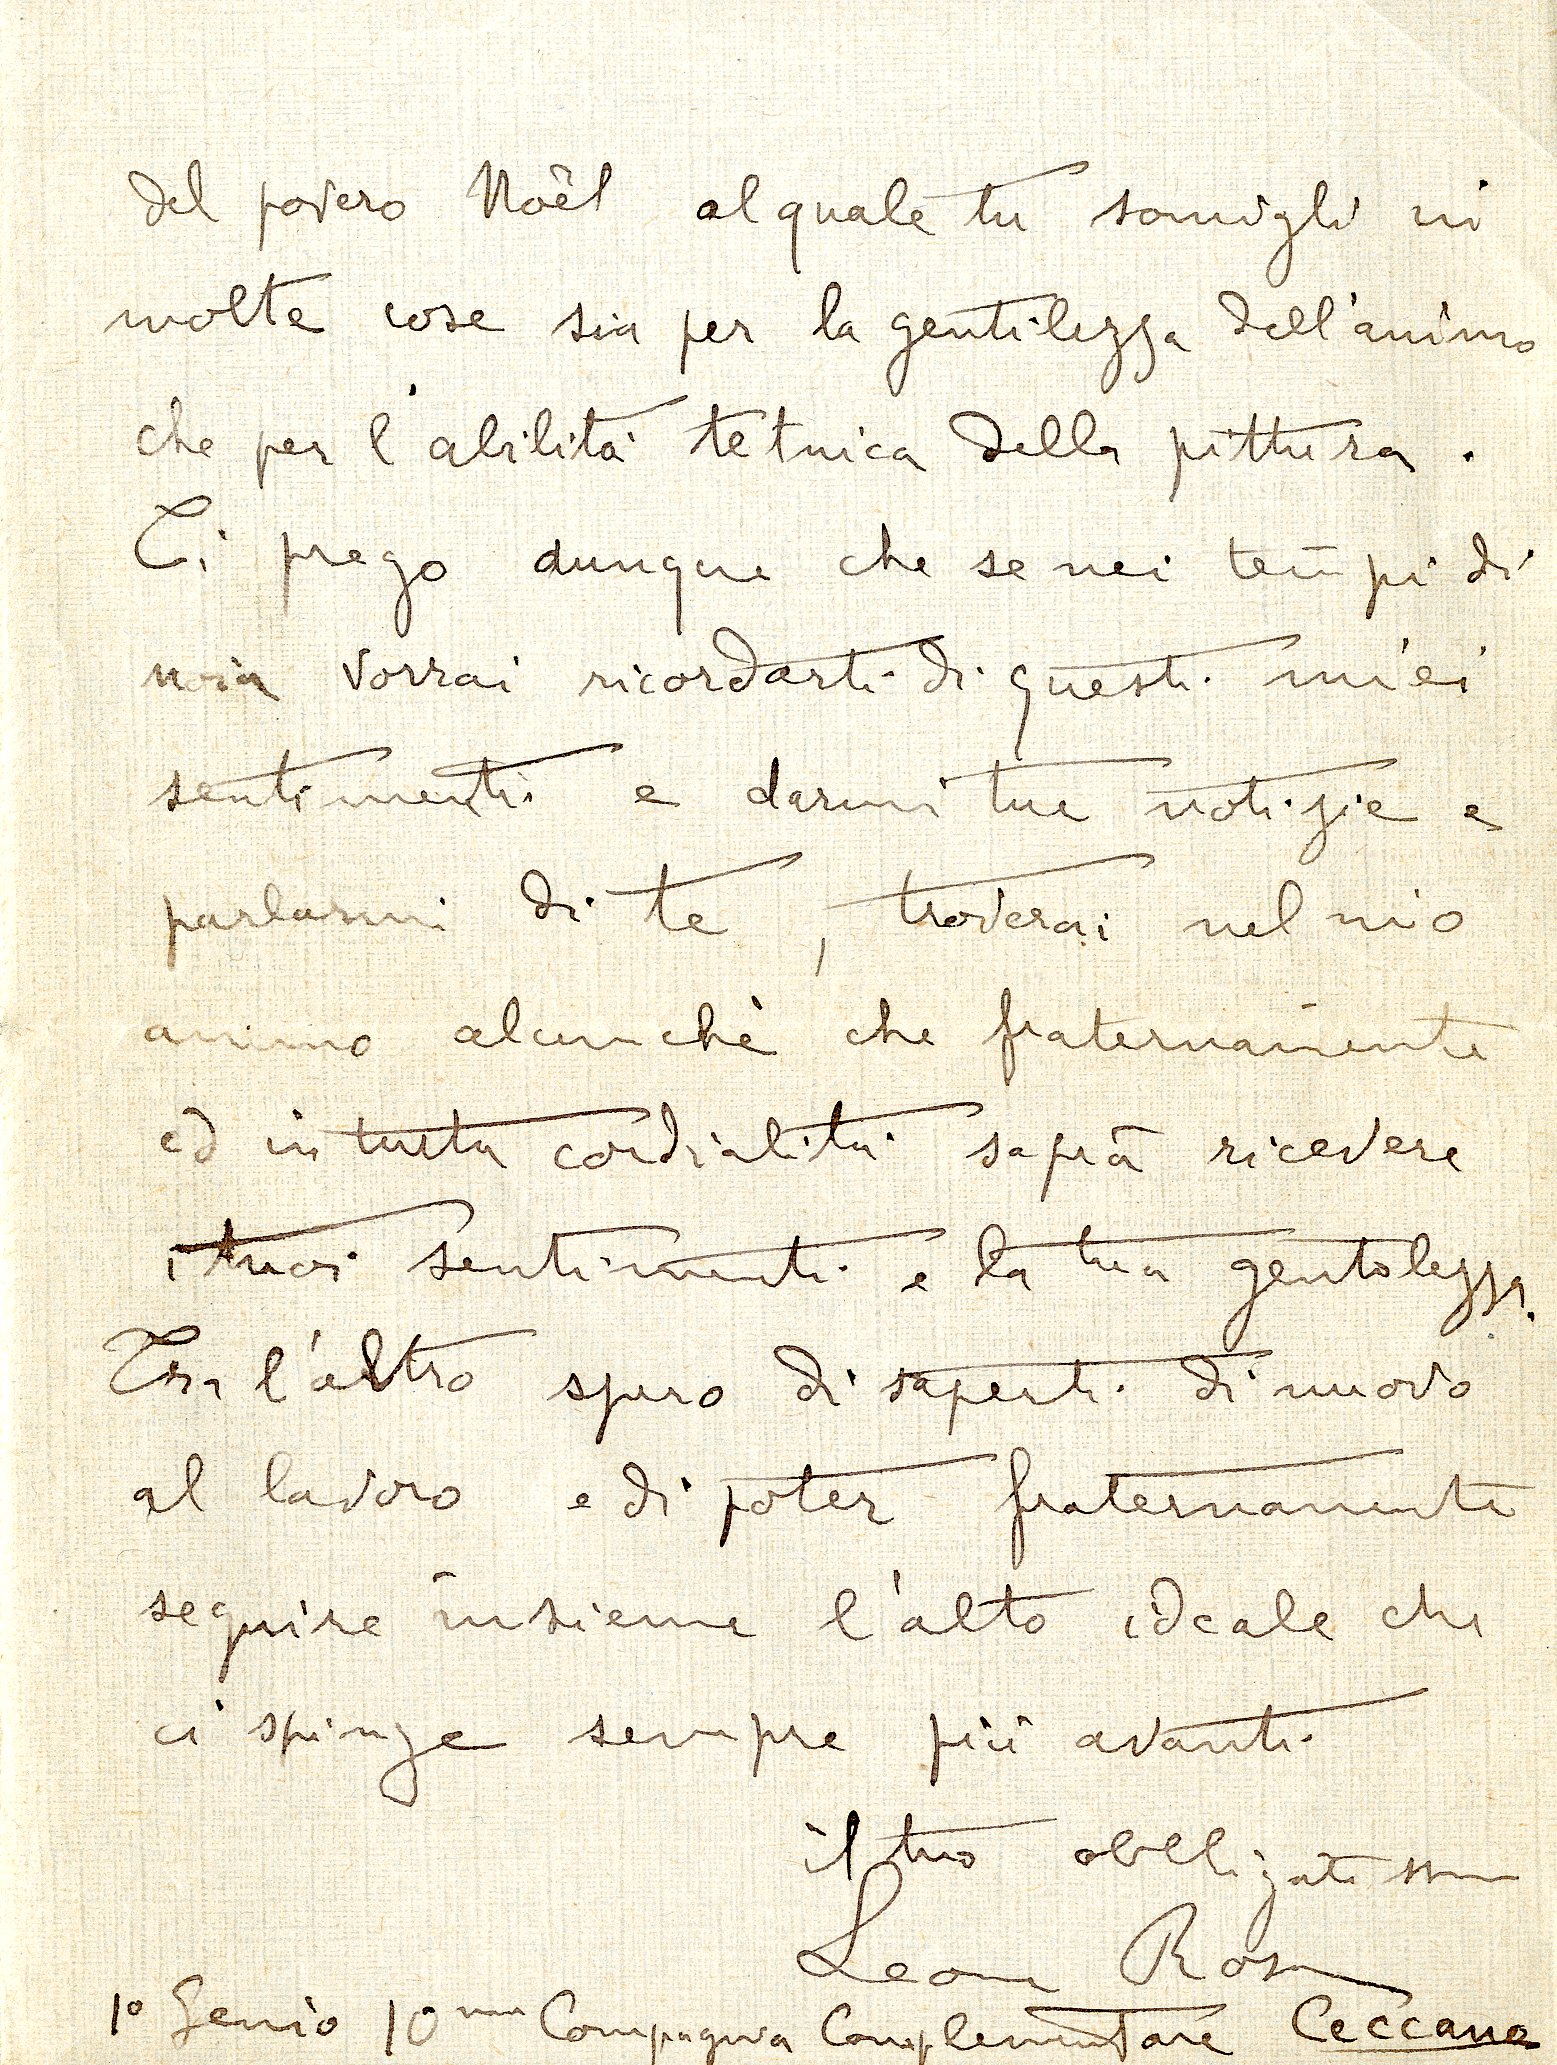 del povero Noël al quale tu somigli in
molte cose sia per la gentilezza dell'animo
che per l'abilità tetnica della pittura.
Ti prego dunque che se nei tempi di
noia vorrai ricordarti di questi miei
sentimenti e darmi tue notizie e
parlarmi di te, troverai nel mio
animo alcunchè che fraternamente
ed in tutta cordialità saprà ricevere
i tuoi sentimenti e la tua gentolezza.
Tra l'altro spero di saperti di nuovo
al lavoro e di poter fraternamente
seguire insieme l'alto ideale che
ci spinge sempre più avanti
il tuo obbligatissimo
Leone Rosa
1° Genio 10ma Compagnia Complementare Ceccano